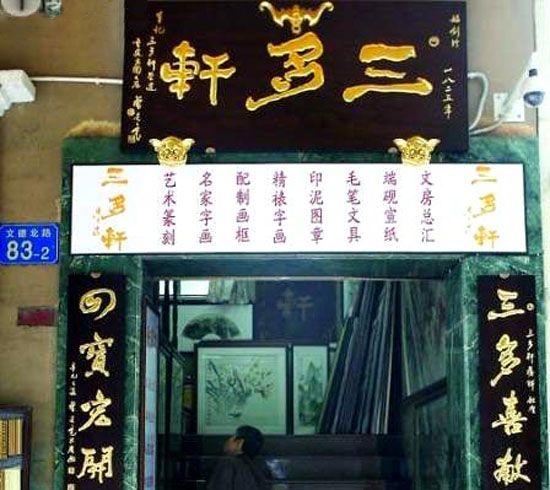 三多軒
始创於
一八二五年
三多軒
文房总汇
端砚宣纸
毛笔文具
印泥图章
精裱字画
配制画框
名家字画
艺术篆刻
三多轩
文德北路
83-2
三多喜献
四寳宏開
軒